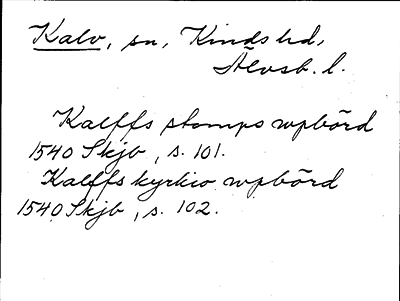 Kalv, sn, Kinds hd,
Älvsb. l.
Kalffs stomps wpbörd
1540 Skjb, s. 101.
Kalffs kyrkio wpbörd
1540 Skjb, s. 102.